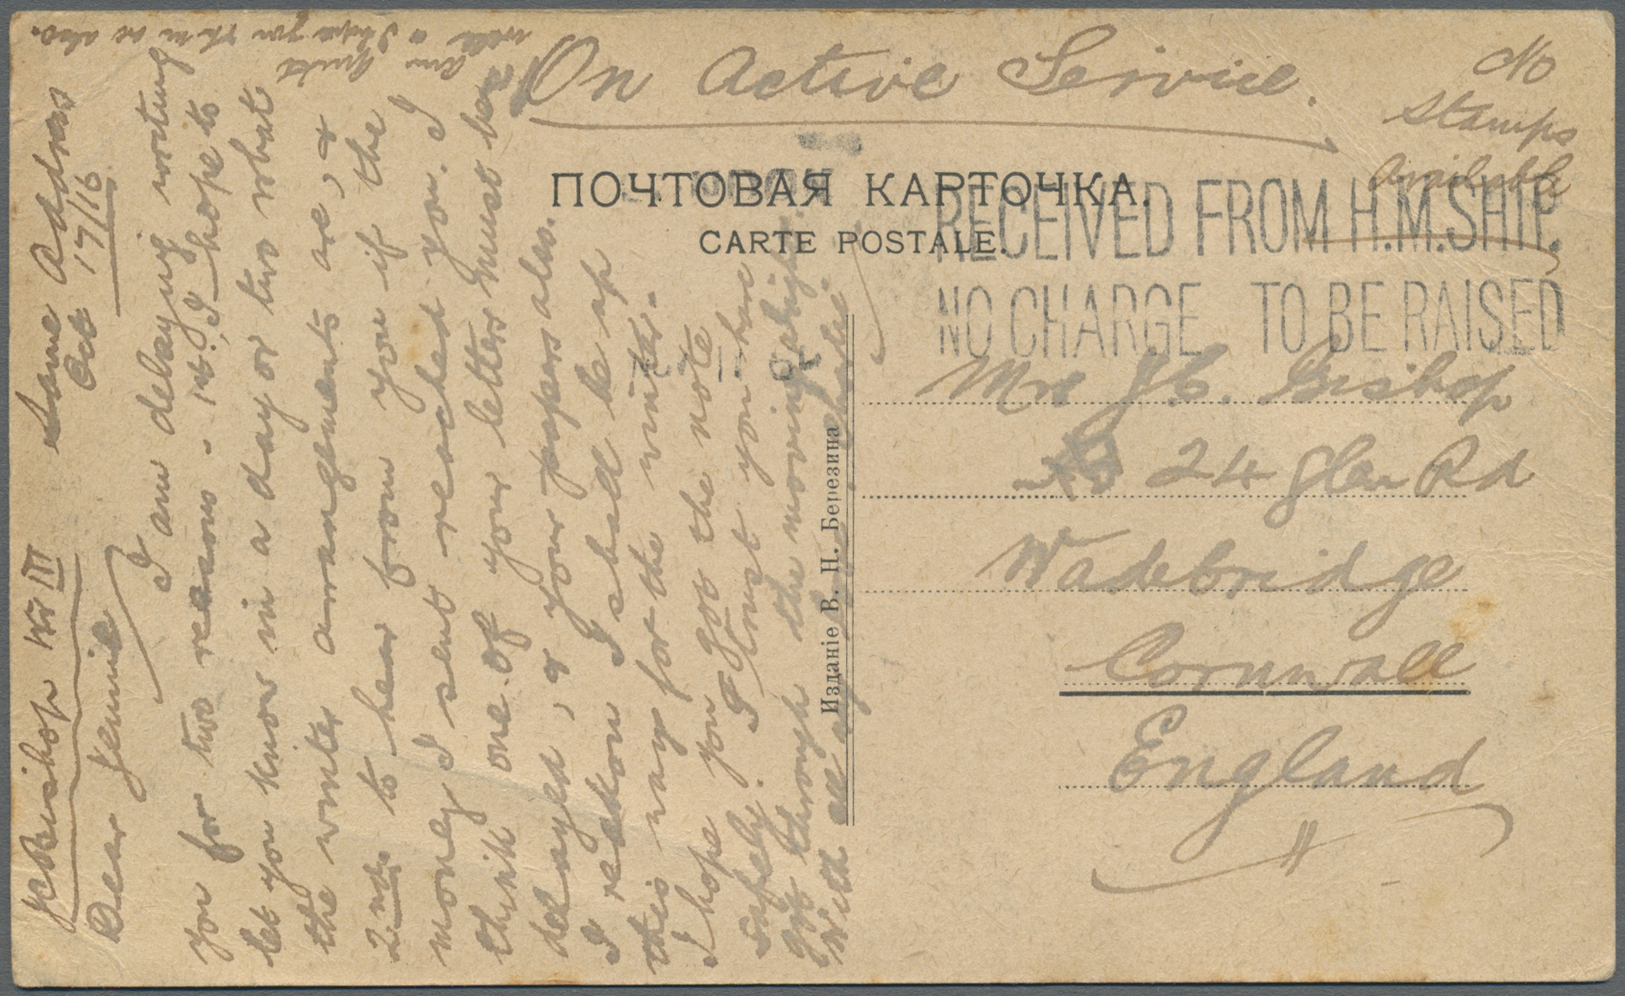 On Active Service.
No
Stamps
Available
ПОЧТОВАЯ КАРТОЧКА.
CARTE POSTALE.
RECEIVED FROM H.M.SHIP.
NO CHARGE TO BE RAISED
Mrs J C. Bishop
24 Glen Rd
Wadebridge
Cornwall
England
Изданіе В. Н. Березина
Bishop
Same Address
Oct 17/16
Dear Jennie
I am delaying writing
you for two reasons - 1st. I hope to
let you know in a day or two what
the winter arrangements are, &
2nd. to hear from you if the
money I sent reached you. I
think one of your letters must be
delayed, & your papers also.
I reckon I shall be up
this way for the winter.
I hope you got the note
safely. I trust you have
got through the moving alright.
With all my
am quite
well & I hope you are also.